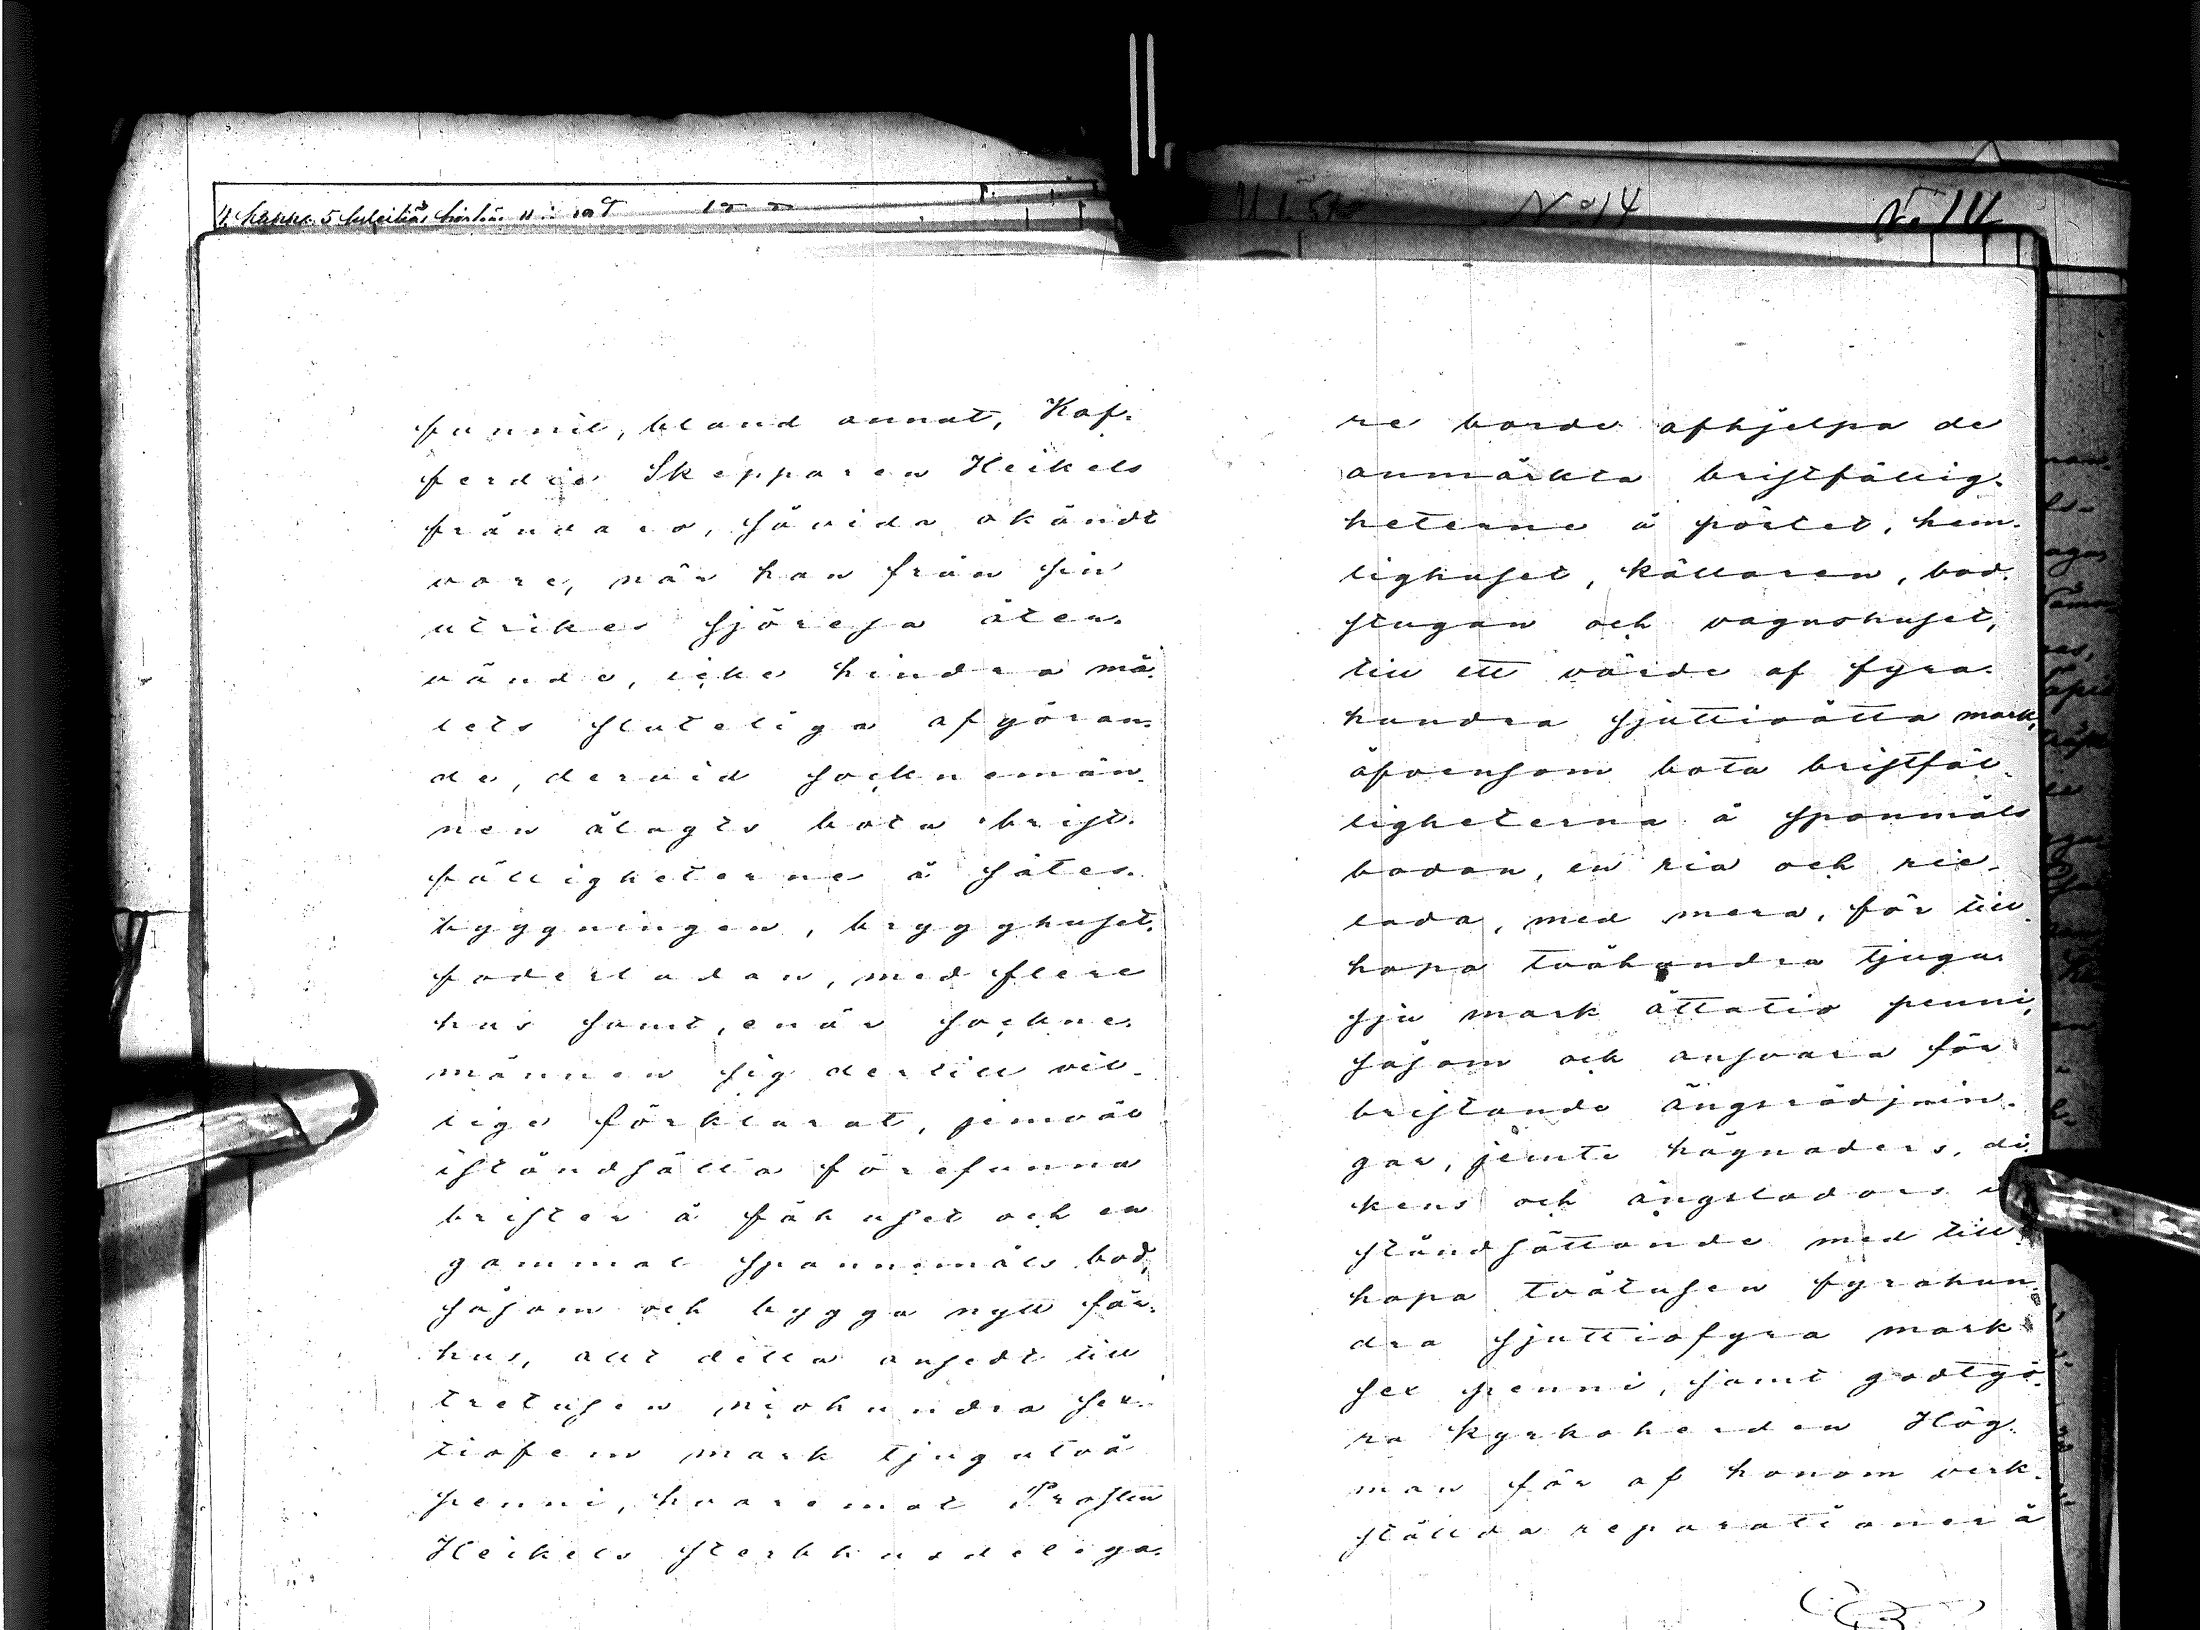 N:o 14
N:o 14
funnit, bland annat, Kof-
ferdie Skepparen Heikels
frånvaro, såvida okändt
vore, när han från sin
utrikes sjöresa åter-
vände, icke hindra må-
lets sluteliga afgöran-
de, dervid socknemän-
nen ålagts bota brist-
fälligheterne å sätes-
byggningen, brygghuset,
foderladan, med flere
hus samt, enär sockne-
männen sig dertill vil-
lige förklarat, jemväl
iståndsätta förefunna
brister å fähuset och en
gammal spannemåls bod,
såsom och bygga nytt får-
hus, allt detta ansedt till
tretusen niohundra sex-
tiofem mark tjugutvå
penni, hvaremot Prosten
Heikels sterbhusdelega-
re borde afhjelpa de
anmärkta bristfällig-
heterne å pörtet, hem-
lighuset, källaren, bad-
stugan och vagnshuset,
till ett värde af fyra-
hundra sjuttioåtta mark,
äfvensom bota bristfäl-
ligheterna å spanmåls
bodan, en ria och rie-
lada, med mera, för till-
hopa tvåhundra tjugu-
sju mark åttatio penni,
såsom och ansvara för
bristande ängsrödjnin-
gar, jemte hägnaders, di-
kens och ängsladors i
ståndsättande med till-
hopa tvåtusen fyrahun-
dra sjuttiofyra mark
sex penni, samt godtgö-
ra Kyrkoherden Hög-
man för af honom verk-
stälda reparationer å